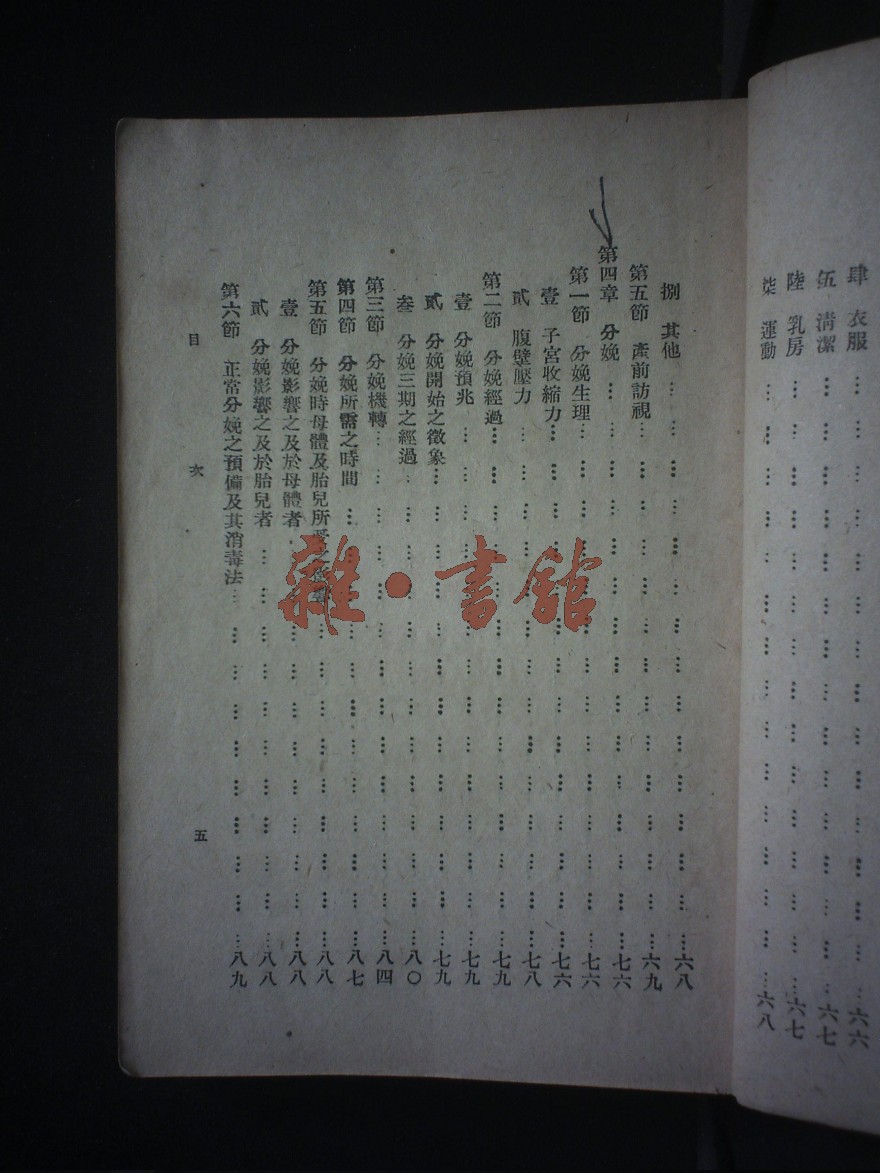 肆 衣服 … … … … … … … … … … … … 六六
伍 清潔 … … … … … … … … … … … … 六七
陸 乳房 … … … … … … … … … … … … 六七
柒 運動 … … … … … … … … … … … … 六八
捌 其他 … … … … … … … … … … … 六八
第五節 產前訪視 … … … … … … … … … … 六九
第四章 分娩 … … … … … … … … … … … 七六
第一節 分娩生理 … … … … … … … … … … 七六
壹 子宮收縮力 … … … … … … … … … … 七六
貳 腹壁壓力 … … … … … … … … … … 七八
第二節 分娩經過 … … … … … … … … … … 七九
壹 分娩預兆 … … … … … … … … … … 七九
貳 分娩開始之徵象 … … … … … … … … … 七九
叁 分娩三期之經過 … … … … … … … … … 八〇
第三節 分娩機轉 … … … … … … … … … … 八四
第四節 分娩所需之時間 … … … … … … … … … 八七
第五節 分娩時母體及胎兒所 … … … … … … … 八八
壹 分娩影響之及於母體者 … … … … … … … … 八八
貳 分娩影響之及於胎兒者 … … … … … … … … 八八
第六節 正當分娩之預備及其消毒法 … … … … … … … 八九
目 次 五
雜·書館